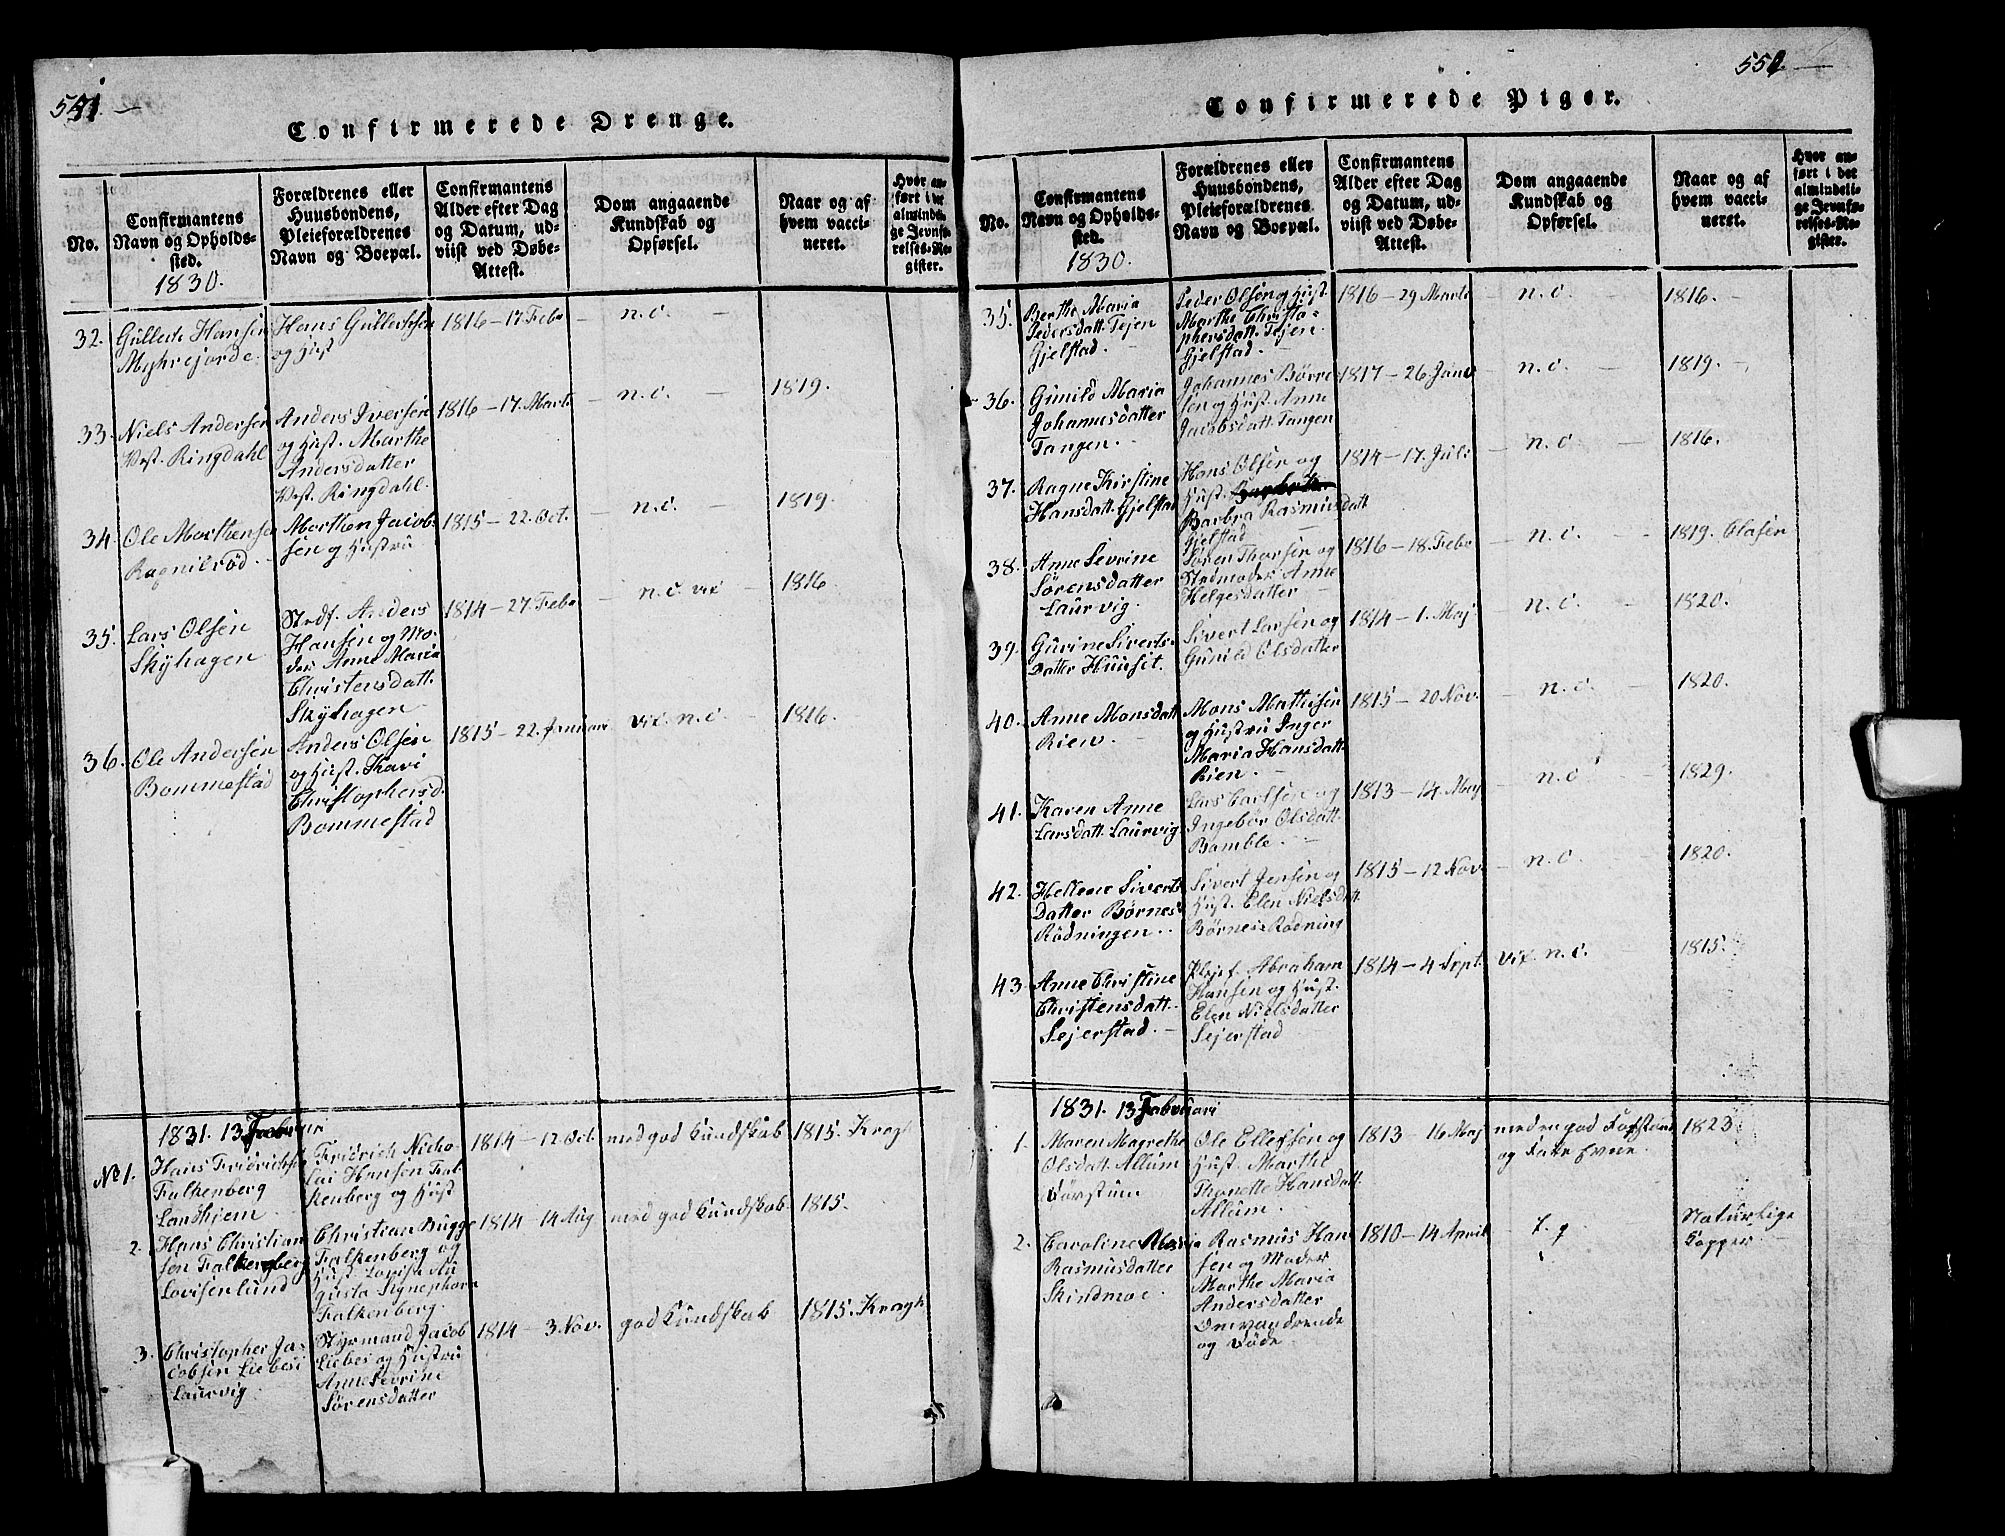 541.
Confirmerede Drenge.
No.
Confirmantens
Navn og Opholds-
sted.
1830.
Forældrenes eller
Huusbondens,
Pleieforældrenes
Navn og Boepæl.
Confirmantens
Alder efter Dag
og Datum, ud-
viist ved Døbe-
Attest.
Dom angaaende
Kundskab og
Opførsel.
Naar og af
hvem vacci-
neret.
Hvor an-
ført i det
almindeli-
ge Jevnfø-
relses-Re-
gister.
32. Gullerk Hansen
Myhrejorde.
Hans Gullerksen
og Hust
1816 – 17. Febr – n. c. –
33. Niels Andersen
Vest. Ringdahl
Anders Iversen
og Hust. Marthe
Andersdatter
Vest. Ringdahl.
1816 – 17. Marts – n. c. – 1819.
34. Ole Marthensen
Ragnilrød.
Marthen Jacob-
sen og Hustru
1815 – 22. Oct. – n. c. – 1819.
35. Lars Olsen
Skÿhagen
Stedf. Anders
Hansen og Mo-
der Anne Maria
Christensdatt.
Skÿhagen
1814 – 27. Febr – n. c. vix – 1816.
36. Ole Andersen
Bommestad
Anders Olsen
og Hust. Kari
Christophersd.
Bommestad
1815 – 22. Januari vix. n. c. – 1816.
1831. 13 Februari
No 1. Hans Fridrichsen
Falkenberg
Landhjem
Fridrich Nicho-
lai Hansen Fal-
kenberg og Hust
1814 – 12 Oct. med god Kundskab 1815. Krag
2. Hans Christian-
sen Falkenberg
Lovisenlund
Christian Bugge
Falkenberg og
Hust. Lovise Au-
gusta Signephora
Falkenberg.
1814 – 14 Aug med god Kundskab 1815.
3. Christopher Ja-
cobsen Liebes
Laurvig
Styrmand Jacob
Liebes og Hustru
Anne Sevrine
Sørensdatter
1814 – 3. Nov. god Kundskab 1815. Kragh
551.
Confirmerede Piger.
No.
Confirmantens
Navn og Opholds-
sted.
1830.
Forældrenes eller
Huusbondens,
Pleieforældrenes
Navn og Boepæl.
Confirmantens
Alder efter Dag
og Datum, ud-
viist ved Døbe-
Attest.
Dom angaaende
Kundskab og
Opførsel.
Naar og af
hvem vacci-
neret.
Hvor an-
ført i det
almindeli-
ge Jevnfø-
relses-Re-
gister.
35. Berthe Maria
Pedersdatt. Tejen
Gjelstad.
Peder Olsen og Hust.
Marthe Christo-
phersdatt. Tejen
Gjelstad.
1816 – 29 Marts – n. c. 1816. –
36. Gunild Maria
Johannesdatter
Tangen.
Johannes Børre-
sen og Hust. Anne
Jacobsdatt. Tangen
1817 – 26. Janv – n. c. – 1819. –
37. Ragne Kirstine
Hansdatt. Gjelstad
Hans Olsen og
Hust.
Barbra Rasmusdatt
Gjelstad
1814 – 17. Juli – n. c. – 1816.
38. Anne Sevrine
Sørensdatter
Laurvig.
Søren Thorsen og
Stedmoder Anne
Helgesdatter –
1816 – 18. Febr – n. c. – 1819. Clasen
39. Gurine Siverts-
datter Huuset.
Sivert Larsen og
Gunild Olsdatter
1814 – 1. Maj – n. c. – 1820.
40. Anne Monsdatt
Rien.
Mons Mathisen
og Hustru Inger
Maria Hansdatt.
Rien.
1815 – 20 Nov. – n. c. – 1820.
41. Karen Anne
Larsdatt. Laurvig
Lars Carlsen og
Ingebor Olsdatt.
Bamble.
1813 – 14. Maj – n. c. 1829.
42. Hellene Siverts-
datter Børnes-
Rødningen.
Sivert Jensen og
Hust. Elen Nielsdatt.
Børnes-Rødning
1815 – 12 Nov. – n. c. – 1820.
43. Anne Christine
Christensdatt.
Sejerstad. –
Plejef. Abraham
Hansen og Hust.
Elen Nielsdatter
Sejerstad
1814 – 4 Sept. vix. n. c. – 1815.
1831. 13 Februari
1. Maren Magrethe
Olsdatt. Allum
Ole Ellefsen og
Hust. Marthe
Thonette Hansdatt.
Allum.
1813 – 16 Maj
og
1823
2. Caroline Maria
Rasmusdatter
Skindmoe.
Rasmus Han-
sen og Moder
Marthe Maria
Andersdatter
Omvandrende
og Døde.
1810 – 14 April
Naturlige
Kopper